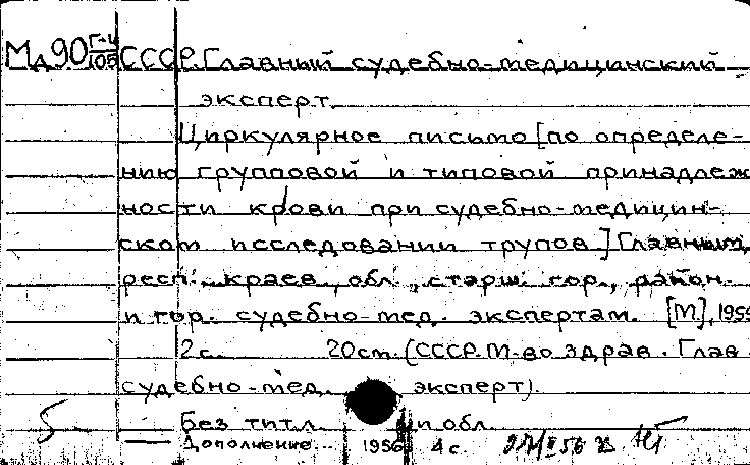 Мд90 Г-4/105 СССР. Главный судебно-медицинский
эксперт.
Циркулярное письмо [по определе-
нию групповой и типовой принадлеж
ности крови при судебно-медицин-
ском исследовании трупов.] Главным,
респ., краев., обл., старш. гор., район.
и гор. судебно-мед. экспертам. [М], 1955
2 с. 20 см. (СССР. М-во здрав. Глав
судебно-мед. эксперт).
Без тит. л. и обл.
Дополнение 1956 4 с.